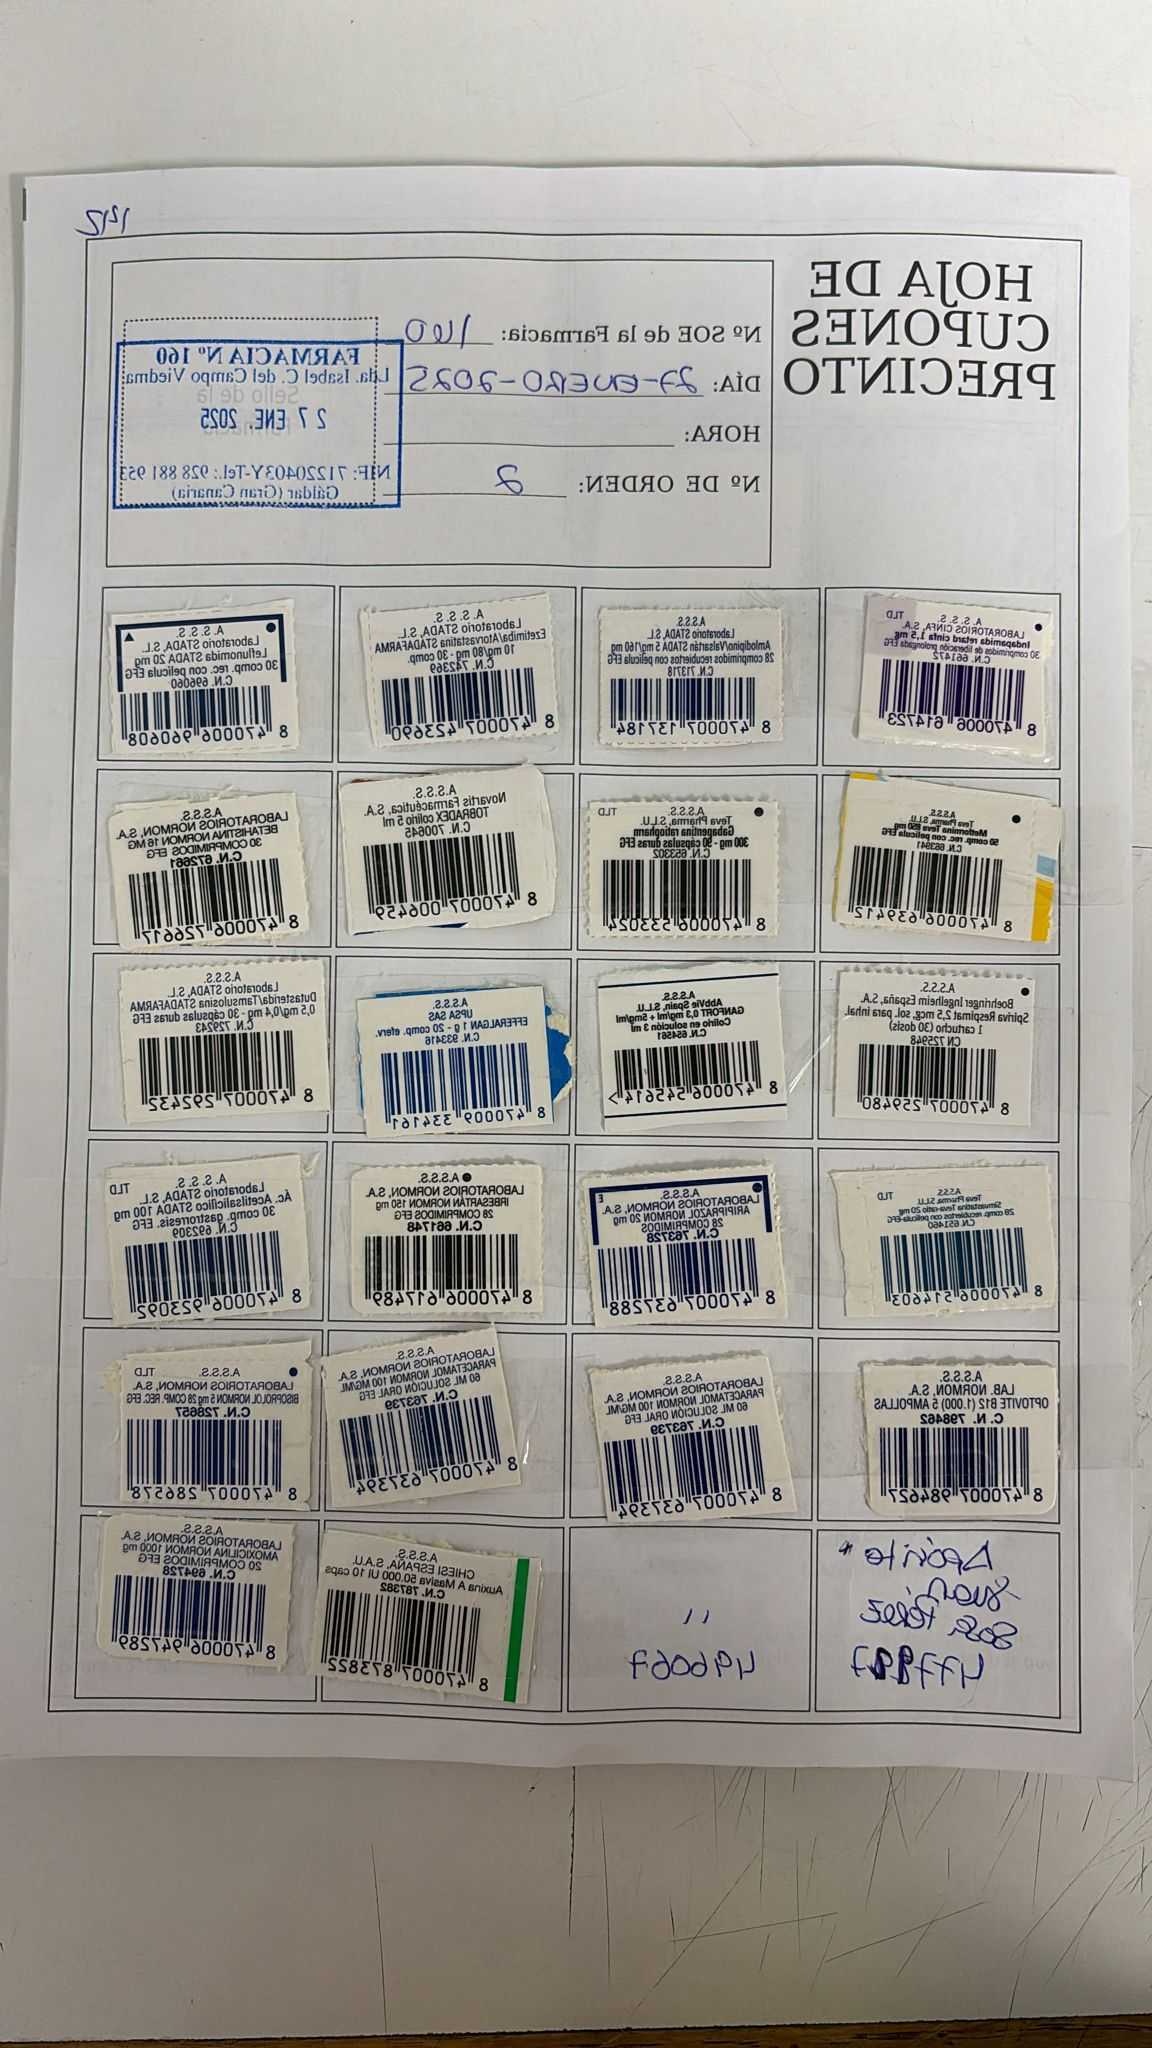 HOJA DE
CUPONES
PRECINTO
Nº SOE de la Farmacia: 160
DÍA: 27-ENERO-2025
HORA:
Nº DE ORDEN: 2
Sello de la
Farmacia
FARMACIA Nº 160
Lda. Isabel C. del Campo Viedma
27 ENE. 2025
NIF: 71220403Y-Tel.: 928 881 953
Gáldar (Gran Canaria)
TLD
A.S.S.S.
LABORATORIOS CINFA, S.A.
Indapamida retard cinfa 1,5 mg
30 comprimidos de liberación prolongada EFG
C.N. 661472
8 470006 614723
A.S.S.S.
Laboratorio STADA, S.L.
Amlodipino/Valsartán STADA 5 mg/160 mg
28 comprimidos recubiertos con película EFG
C.N. 713718
8 470007 137184
A.S.S.S.
Laboratorio STADA, S.L.
Ezetimiba/Atorvastatina STADAFARMA
10 mg/80 mg - 30 comp.
C.N. 742369
8 470007 423690
A.S.S.S.
Laboratorio STADA, S.L.
Leflunomida STADA 20 mg
30 comp. rec. con película EFG
C.N. 696060
8 470006 960608
A.S.S.S.
Teva Pharma, S.L.U.
Metformina Teva 850 mg
50 comp. rec. con película EFG
C.N. 663941
8 470006 639412
TLD
A.S.S.S.
Teva Pharma, S.L.U.
Gabapentina ratiopharm
300 mg - 90 cápsulas duras EFG
C.N. 653302
8 470006 533024
A.S.S.S.
Novartis Farmacéutica, S.A.
TOBRADEX colirio 5 ml
C.N. 700645
8 470007 006459
A.S.S.S.
LABORATORIOS NORMON, S.A.
BETAHISTINA NORMON 16 MG
30 COMPRIMIDOS EFG
C.N. 672661
8 470006 726617
A.S.S.S.
Boehringer Ingelheim España, S.A.
Spiriva Respimat 2,5 mcg, sol. para inhal.
1 cartucho (30 dosis)
CN 725948
8 470007 259480
A.S.S.S.
AbbVie Spain, S.L.U.
GANFORT 0,3 mg/ml + 5mg/ml
Colirio en solución 3 ml
C.N. 654561
8 470006 545614 >
A.S.S.S.
UPSA SAS
EFFERALGAN 1 g - 20 comp. eferv.
C.N. 933416
8 470009 334161
A.S.S.S.
Laboratorio STADA, S.L.
Dutasterida/Tamsulosina STADAFARMA
0,5 mg/0,4 mg - 30 cápsulas duras EFG
C.N. 729243
8 470007 292432
TLD
A.S.S.S.
Teva Pharma, S.L.U.
Simvastatina Teva-ratio 20 mg
28 comp. recubiertos con película EFG
C.N. 651460
8 470006 514603
E
A.S.S.S.
LABORATORIOS NORMON, S.A.
ARIPIPRAZOL NORMON 20 mg
28 COMPRIMIDOS
C.N. 763728
8 470007 637288
A.S.S.S.
LABORATORIOS NORMON, S.A.
IRBESARTÁN NORMON 150 mg
28 COMPRIMIDOS EFG
C.N. 661748
8 470006 617489
TLD
A.S.S.S.
Laboratorio STADA, S.L.
Ác. Acetilsalicílico STADA 100 mg
30 comp. gastrorresis. EFG
C.N. 692309
8 470006 923092
A.S.S.S.
LAB. NORMON, S.A.
OPTOVITE B12 (1.000) 5 AMPOLLAS
C.N. 798462
8 470007 984627
A.S.S.S.
LABORATORIOS NORMON, S.A.
PARACETAMOL NORMON 100 MG/ML
60 ML SOLUCIÓN ORAL EFG
C.N. 763739
8 470007 637394
A.S.S.S.
LABORATORIOS NORMON, S.A.
PARACETAMOL NORMON 100 MG/ML
60 ML SOLUCIÓN ORAL EFG
C.N. 763739
8 470007 637394
TLD
A.S.S.S.
LABORATORIOS NORMON, S.A.
BISOPROLOL NORMON 5 mg 28 COMP. REC. EFG
C.N. 728657
8 470007 286578
* Apósito
11
496067
A.S.S.S.
CHIESI ESPAÑA, S.A.U.
Auxina A Masiva 50.000 UI 10 caps
C.N. 787382
8 470007 873822
A.S.S.S.
LABORATORIOS NORMON, S.A.
AMOXICILINA NORMON 1000 mg
20 COMPRIMIDOS EFG
C.N. 694728
8 470006 947289